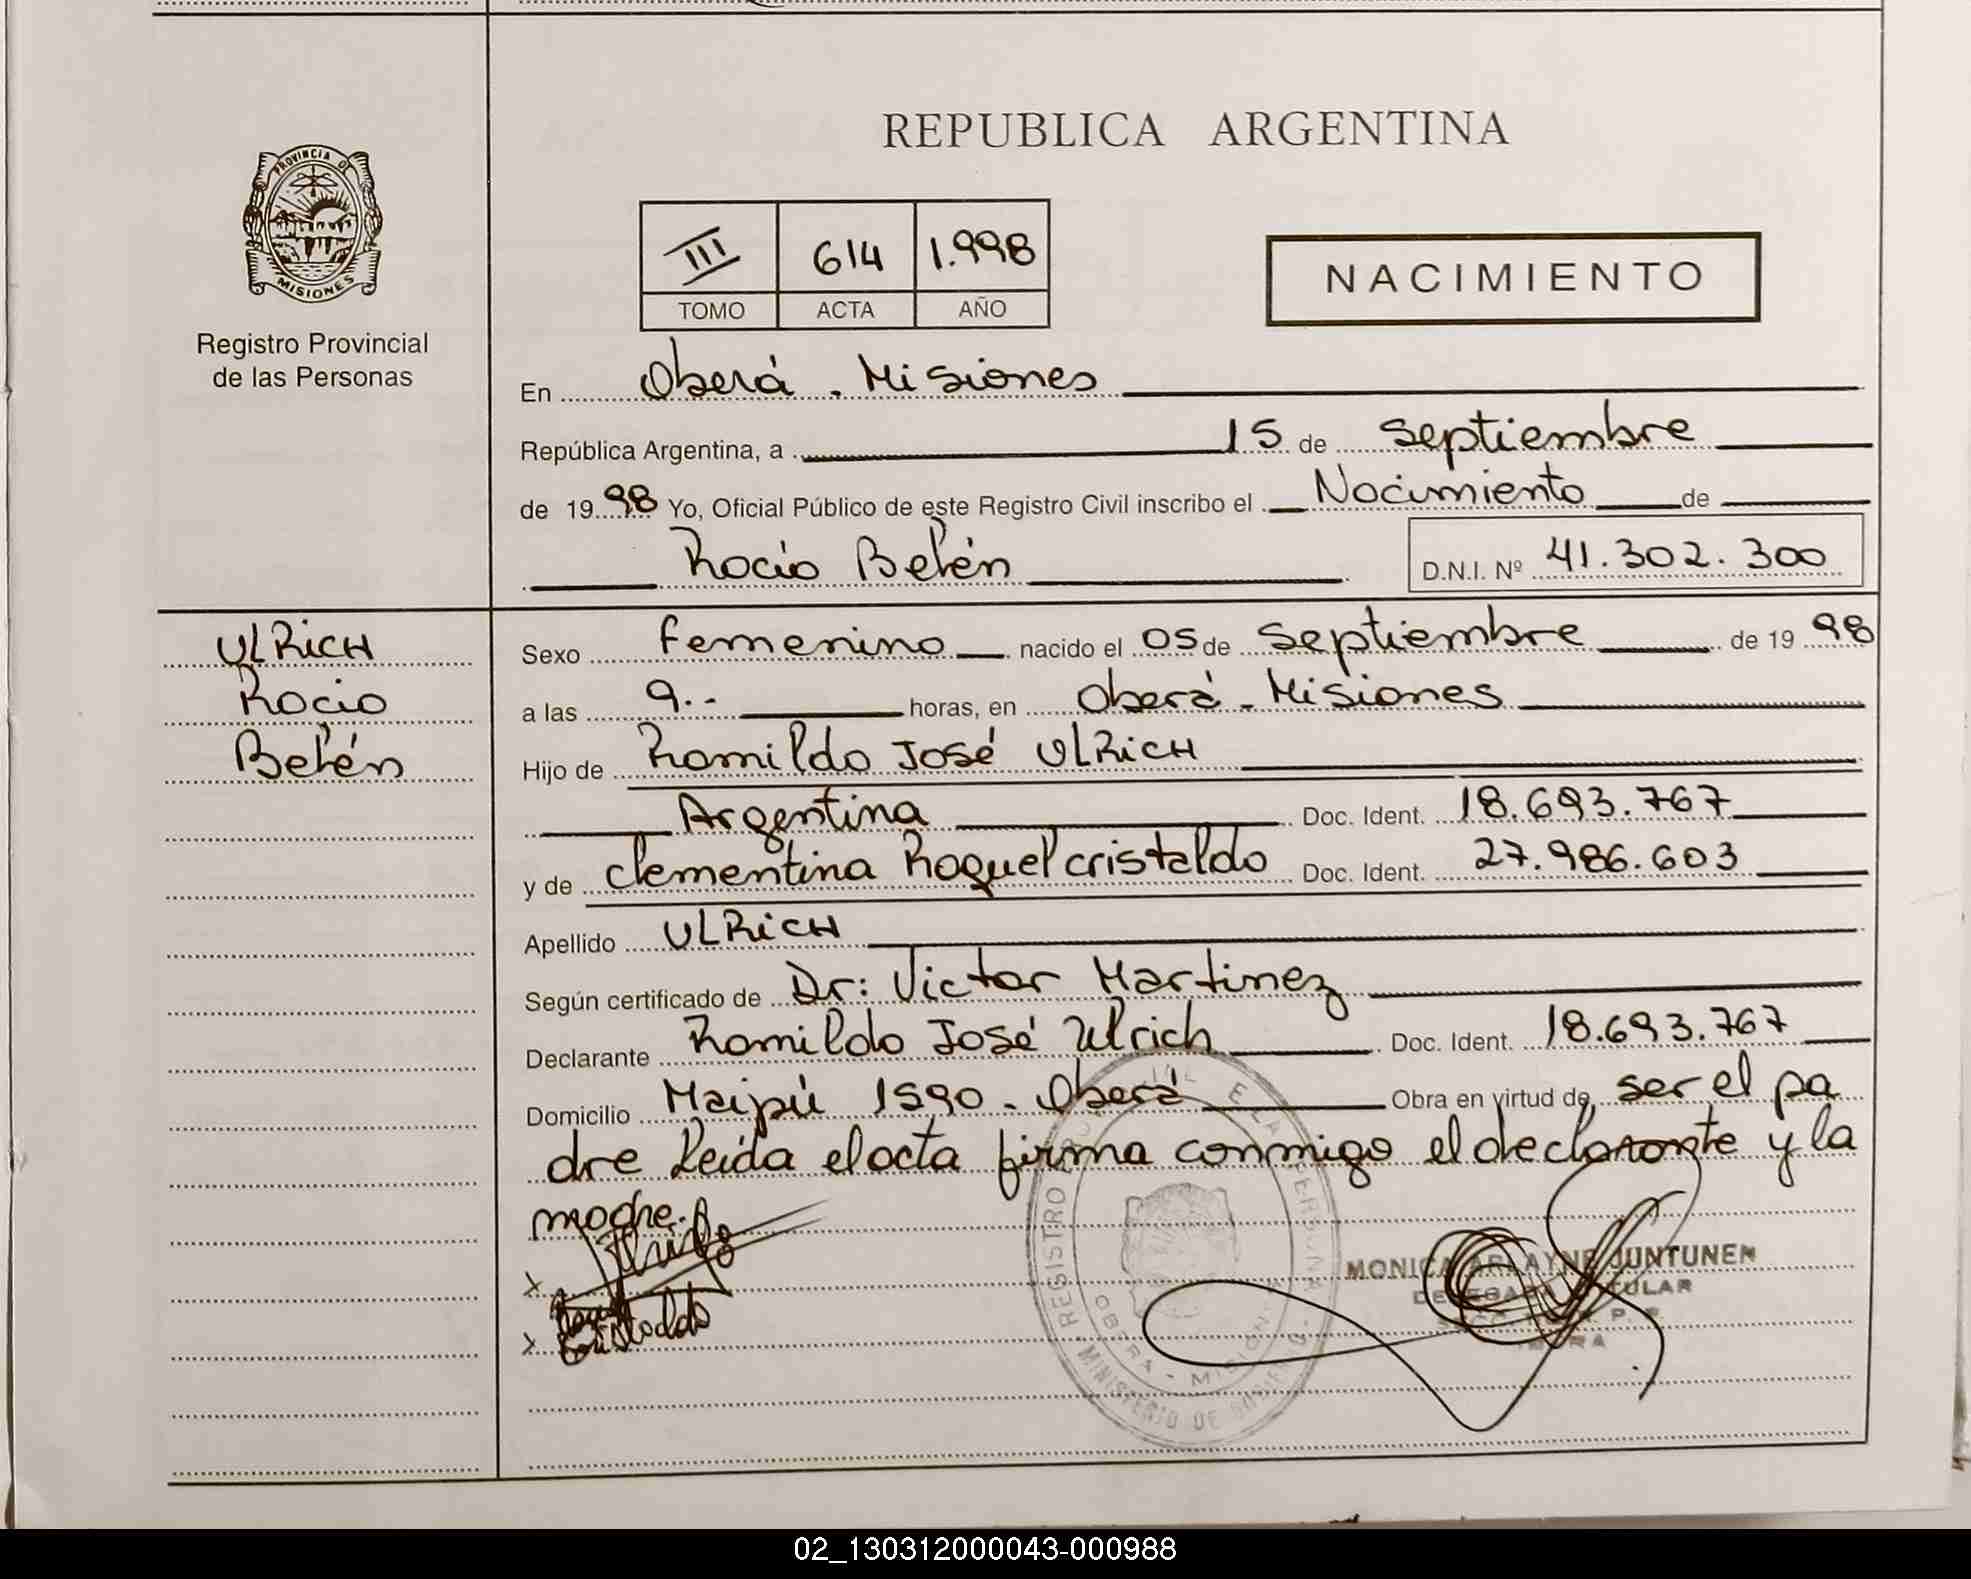 REPUBLICA ARGENTINA
PROVINCIA DE
MISIONES
Registro Provincial
de las Personas
III 614 1.998
TOMO ACTA AÑO
NACIMIENTO
En Oberá. Misiones
República Argentina, a 15 de Septiembre
de 19 98 Yo, Oficial Público de este Registro Civil inscribo el Nacimiento de
Rocio Belén
D.N.I. Nº 41.302.300
ULRICH
Rocio
Belén
Sexo femenino nacido el 05 de Septiembre de 19 98
a las 9.. horas, en Oberá. Misiones
Hijo de Romildo José ULRICH
Argentina Doc. Ident. 18.693.767
y de Clementina Raquel cristaldo Doc. Ident. 27.986.603
Apellido ULRICH
Según certificado de Dr: Victor Martinez
Declarante Romildo José Ulrich Doc. Ident. 18.693.767
Domicilio Maipú 1590. Oberá Obra en virtud de, ser el pa
dre Leída el acta firma conmigo el declarante y la
madre.
X
X Cristaldo
REGISTRO PERSONAS
OBERA - MISIONES
MINISTERIO DE
MONICA ARLAYNE JUNTUNEN
DELEGADA TITULAR
02_130312000043-000988